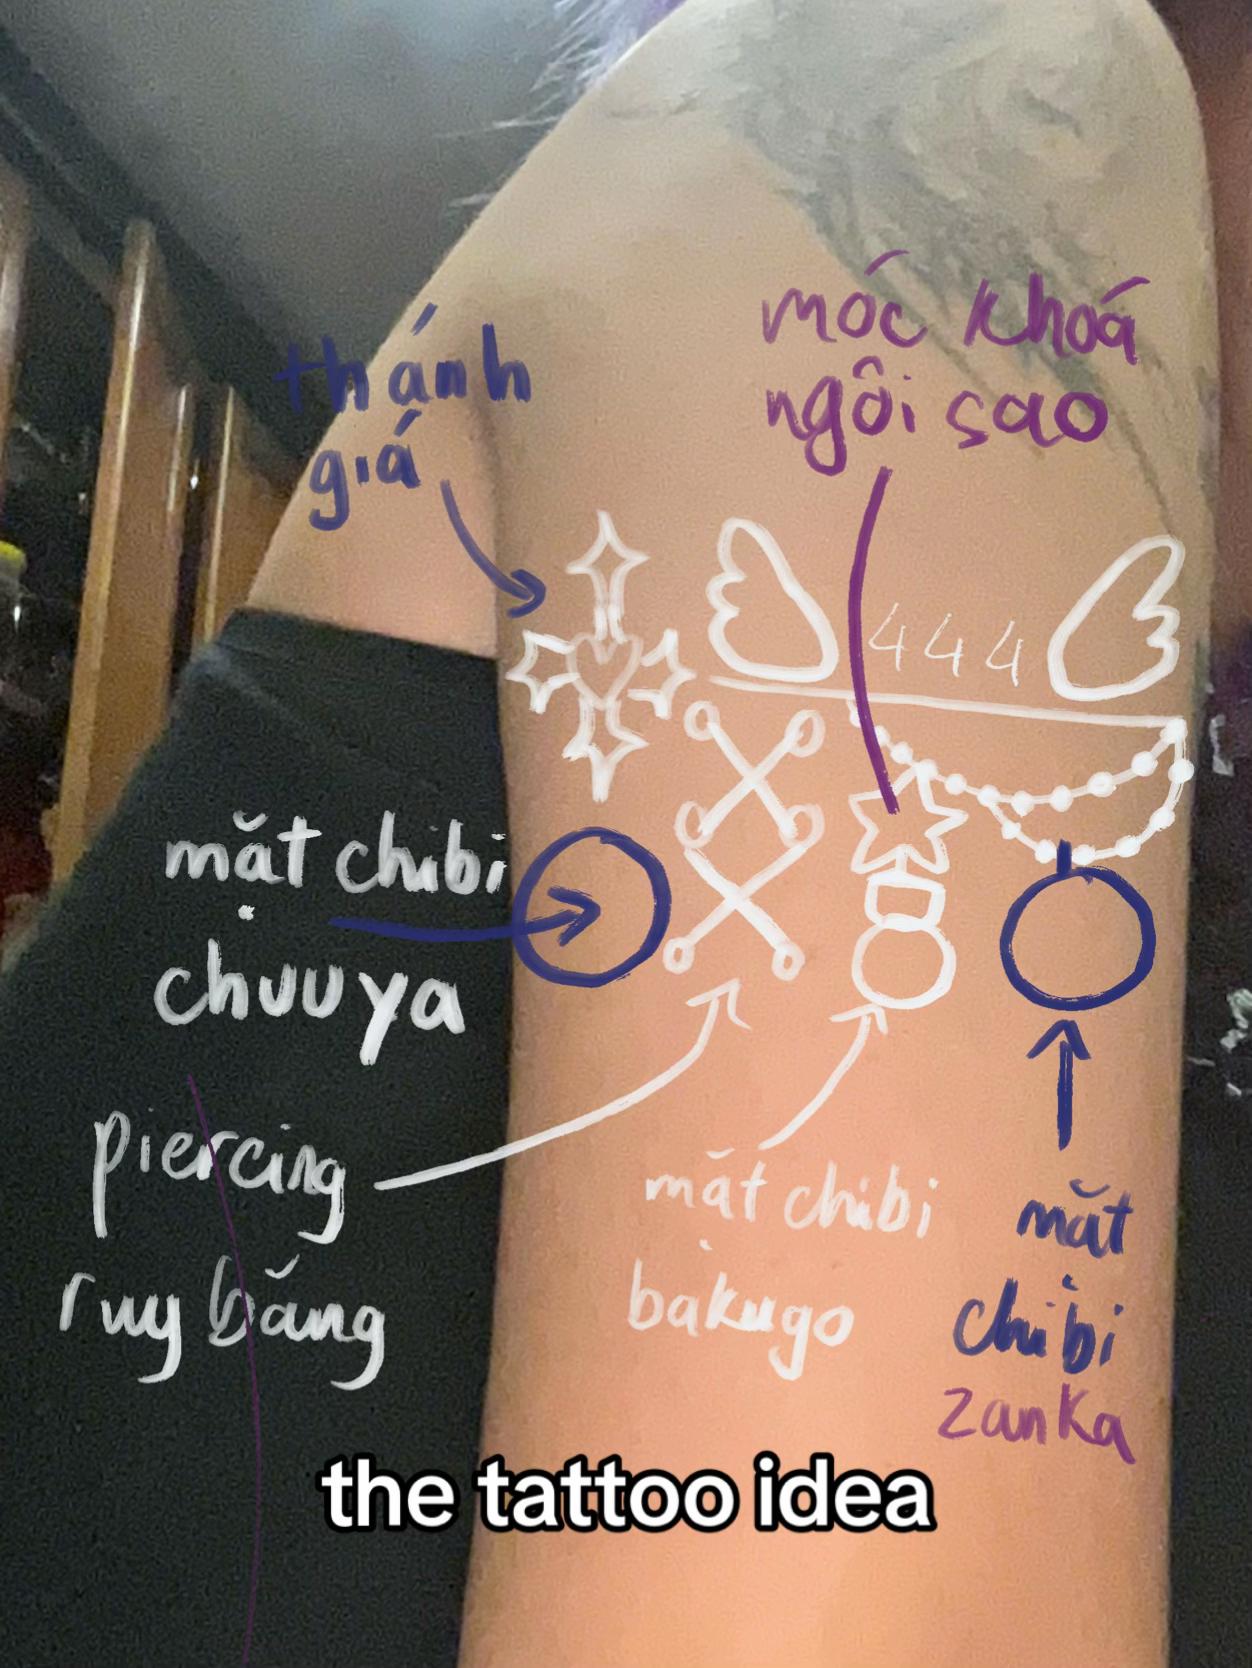 móc khoá
ngôi sao
thánh
giá
444
mặt chibi
chuuya
piercing
ruy băng
mặt chibi
bakugo
mặt
chibi
zanka
the tattoo idea